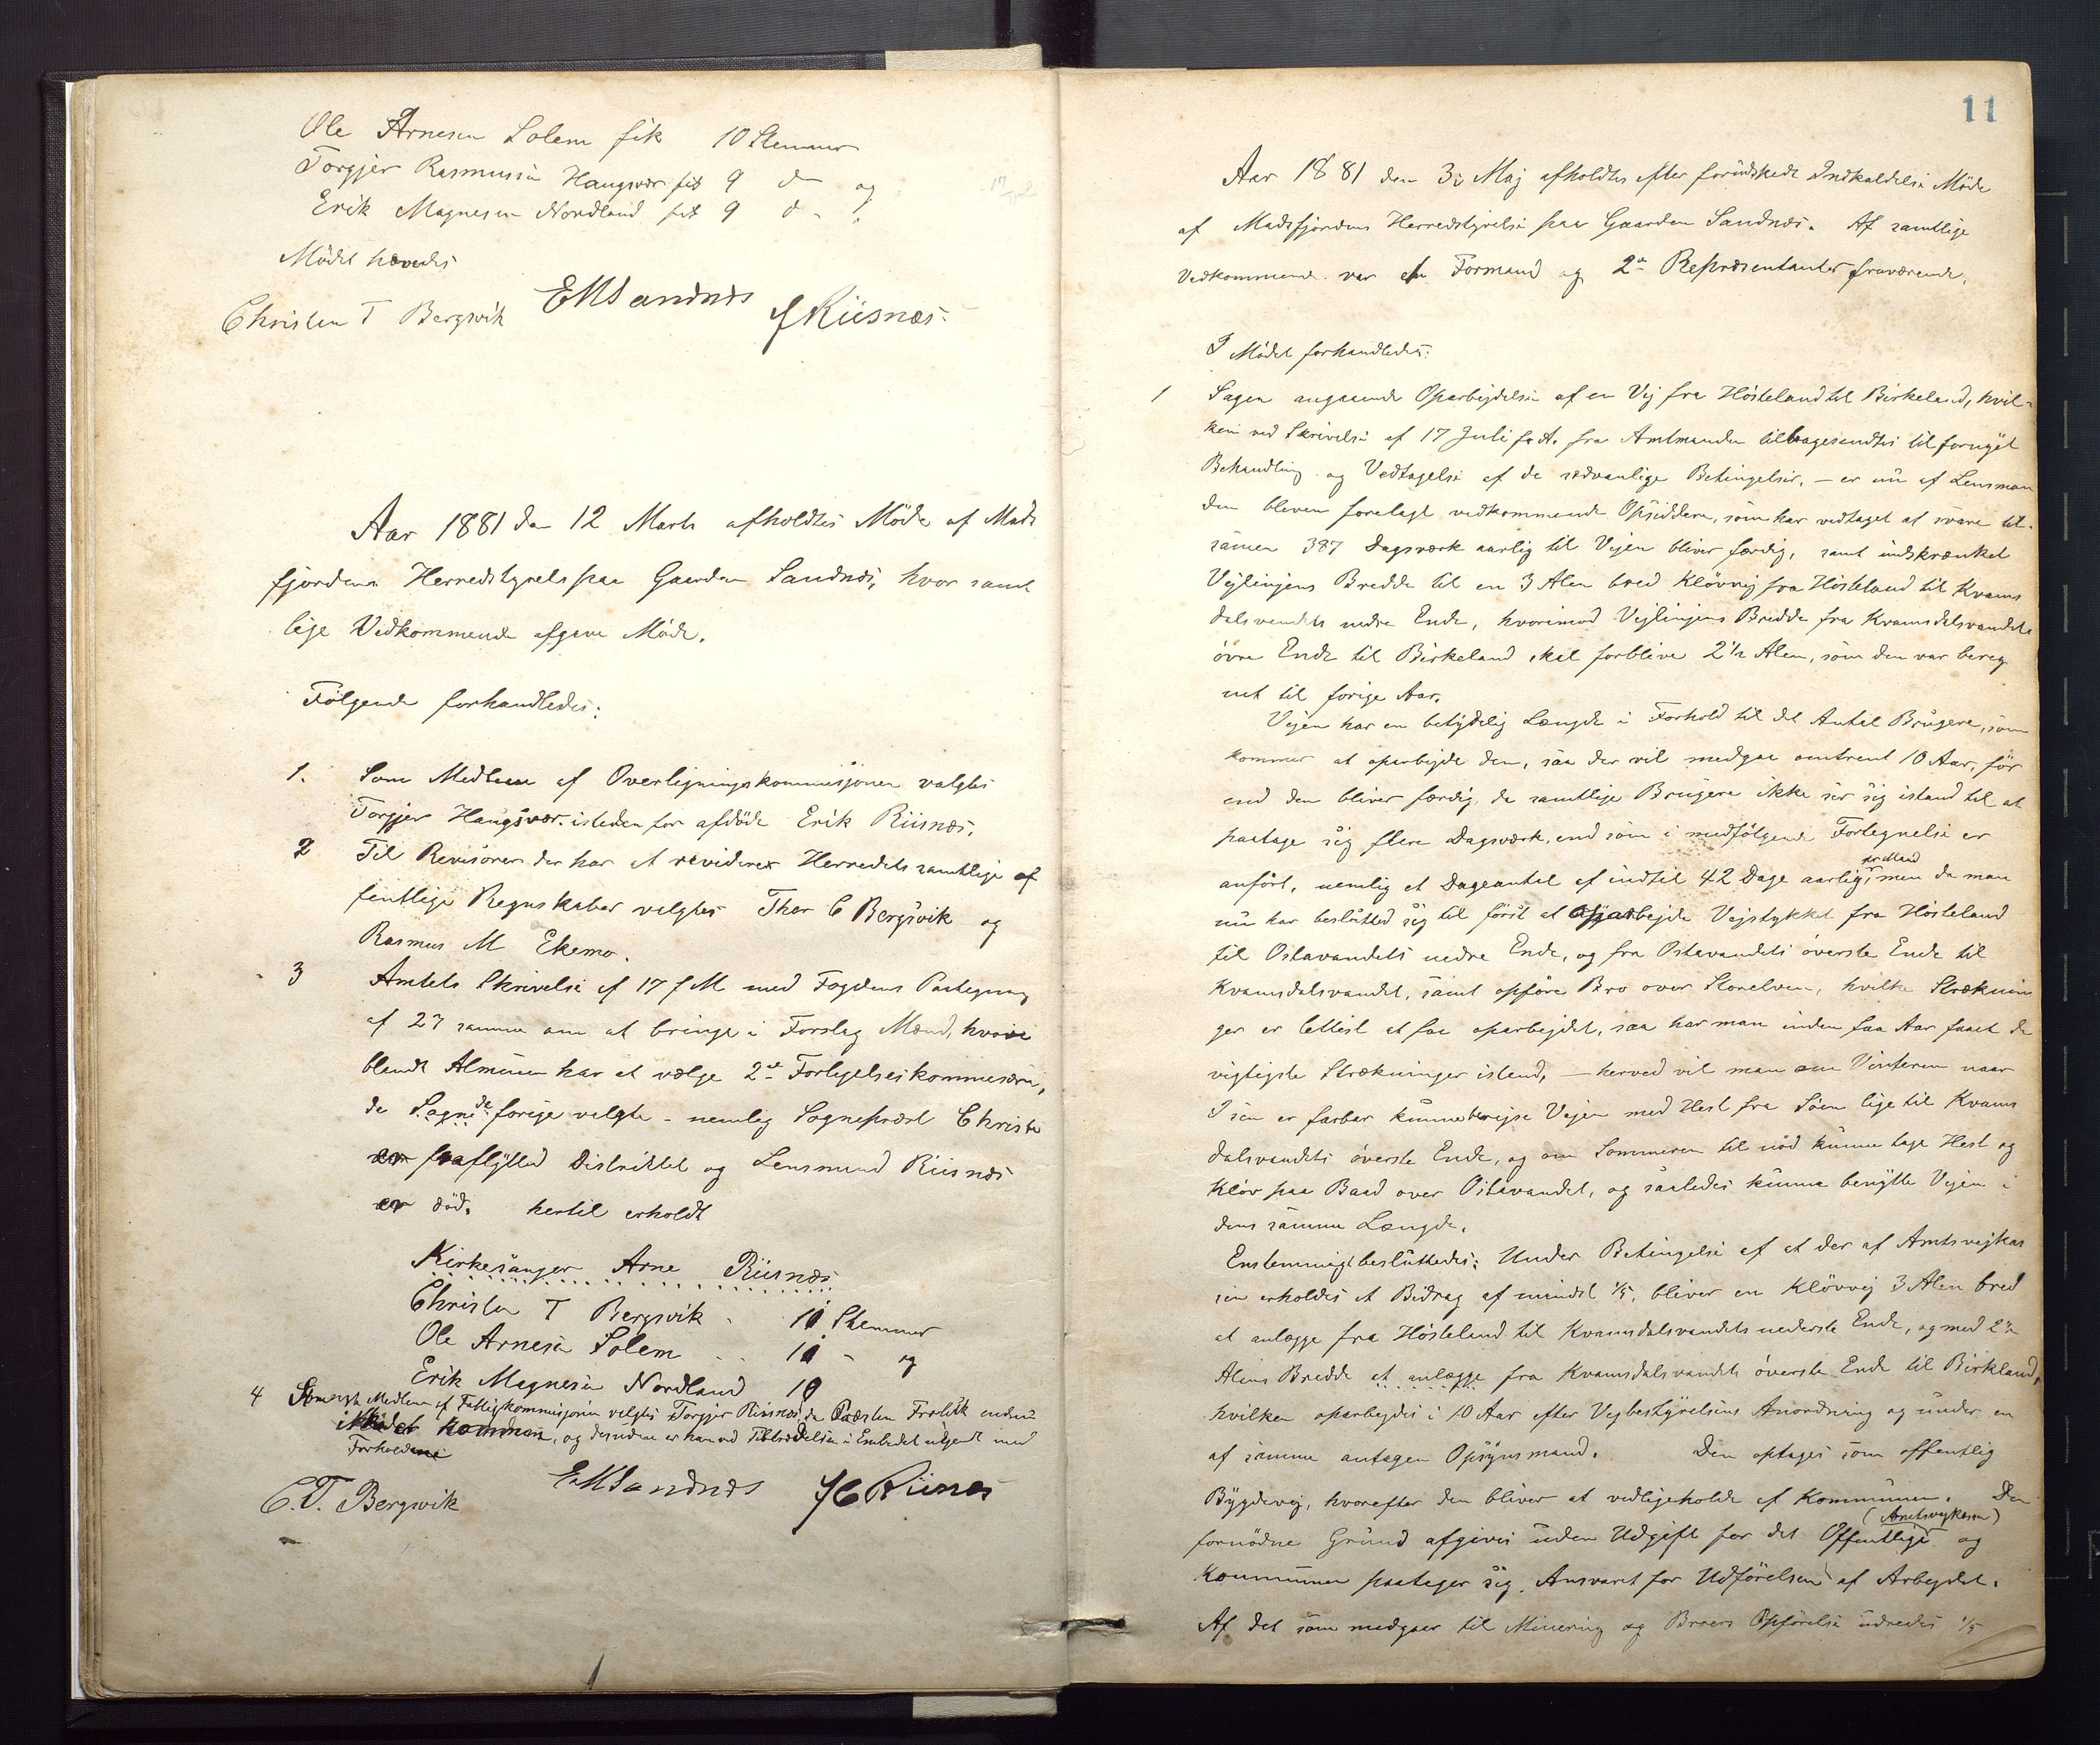 Ole Arnesen Solem fik 10 Stemmer
Torgjer Rasmussen Haugsvær fik 9 do og
Erik Magnesen Nordland fik 9 do
Mødet hævedes
Christen T Bergsvik EMSandnæs J Riisnæs.
Aar 1881 den 12 Marts afholdtes Møde af Mads
fjordens Herredstyrelse paa Gaarden Sandnæs, hvor samt
lige Vedkommende afgave Møde.
Følgende forhandledes:
1. Som Medlem af Overligningskommisjonen valgtes
Torgjer Haugsvær isteden for afdøde Erik Riisnæs.
2 Til Revisorer der har at revidere Herredets samtlige of
fentlige Regnskaber valgtes Thor C Bergsvik og
Rasmus M Ekemo.
3 Amtets Skrivelse af 17 f M med Fogdens Paategning
af 27 samme om at bringe i Forslag Mænd, hvori
blandt Almuen har at vælge 2de Forligelseskommissærer,
da de forrige valgte - nemlig Sogneprest Christe
fraflytted Distriktet og Lensmand Riisnæs
er død. hertil erholdt
Kirkesanger Arne Riisnæs
Christen T Bergsvik 10 Stemmer
Ole Arnesen Solem 10 - og
Erik Magnesen Nordland 10
4 Som Medlem af Fattigkommisjonen valgtes Torgjer Riisnæs, da Præsten endnu
ikke kommen, og desuden er han ved Tiltrædelsen i Embedet ukjendt med
Forholdene
C.T. Bergsvik EMSandnæs J C Riisnæs
11
Aar 1881 den 3die Maj afholdtes efter forudskede Indkaldelse Møde
af Madsfjordens Herredstyrelse paa Gaarden Sandnæs. Af samtlige
Vedkommende var en Formand og 2de Repræsentanter fraværende.
I Mødet forhandledes:
1 Sagen angaaende Oparbejdelse af en Vej fra Høsteland til Birkeland, hvil-
ken ved Skrivelse af 17 Juli f.A. fra Amtmanden tilbagesendtes til fornyet
Behandling og Vedtagelse af de sædvanlige Betingelser, - er nu af Lensman
den bleven forelagt vedkommende Opsiddere, som har vedtaget at svare til-
samen 387 Dagsværk aarlig til Vejen bliver færdig, samt indskrænket
Vejlinjens Bredde til en 3 Alen bred Kløvvej fra Høsteland til Kvams
dalsvandets nedre Ende, hvorimod Vejlinjens Bredde fra Kvamsdalsvandets
øvre Ende til Birkeland skal forblive 2½ Alen, som den var bereg
net til forige Aar.
Vejen har en betydelig Længde i Forhold til det Antal Brugere, som
kommer at oparbejde den, saa der vil medgaa omtrent 10 Aar, før
end den bliver færdig, da samtlige Brugere ikke ser sig istand til at
paatage sig flere Dagsværk, end som i medfølgende Fortegnelse er
anført, nemlig et Dageantal af indtil 42 Dage aarlig pr Mand, men da man
nu har beslutted sig til først at oparbejde Vejstykket fra Høsteland
til Ostavandets nedre Ende, og fra Ostavandets øverste Ende til
Kvamsdalsvandet, samt opføre Bro over Storelven, hvilke Stræknin
ger er lettest at faa oparbejdet, saa har man inden faa Aar faaet de
vigtigste Strækninger istand, - herved vil man om Vinteren naar
Isen er farbar kunne berejse Vejen med Hest fra Søen lige til Kvams
dalsvandets øverste Ende, og om Sommeren til nød kunne tage Hest og
Kløv paa Baad over Ostavandet, og saaledes kunne benytte Vejen i
dens samme Længde.
Enstemmigt besluttedes: Under Betingelse af at der af Amtsvejkas
sen erholdes et Bidrag af mindst 1/5, bliver en Kløvvej 3 Alen bred
at anlægge fra Høsteland til Kvamsdalsvandets nederste Ende, og med 2½
Alens Bredde at anlægge fra Kvamsdalsvandets øverste Ende til Birkland,
hvilken oparbejdes i 10 Aar efter Vejbestyrelsens Anordning og under en
af samme antagen Opsynsmand. Den optages som offentlig
Bygdevej, hvorefter den bliver at vedligeholde af Kommunen. Den
fornødne Grund afgives uden Udgift for det Offentlige (Amtsvejkassen) og
Kommunen paatager sig Ansvaret for Udførelsen af Arbejdet.
Af det som medgaar til Minering og Broers Opførelse udredes 1/5